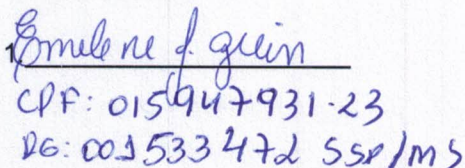 1 Emelene J. Guin
CPF: 015947931-23
RG: 001533472 SSP/MS